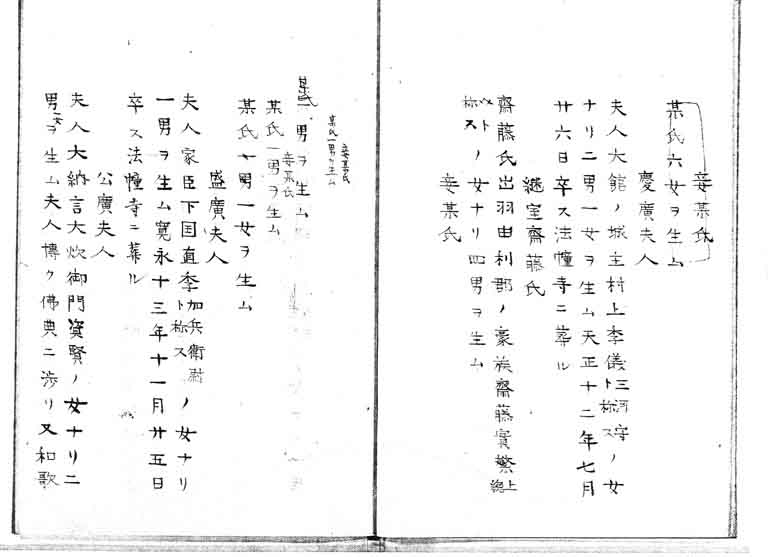 妾某氏
某氏六女ヲ生ム
慶廣夫人
夫人大館ノ城主村上季儀三河守ト称スノ女
ナリ二男一女ヲ生ム天正十二年七月
廿六日卒ス法幢寺ニ葬ル
継室齋藤氏
齋藤氏出羽由利郡ノ豪族齋藤實繁
称スノ女ナリ四男ヲ生ム
妾某氏
妾某氏
某氏一男ヲ生ム
某氏一男ヲ生ム
妾某氏
某氏一男ヲ生ム
某氏一男一女ヲ生ム
盛廣夫人
夫人家臣下国直季加兵衛尉ト称スノ女ナリ
一男ヲ生ム寛永十三年十一月廿五日
卒ス法幢寺ニ葬ル
公廣夫人
夫人大納言大炊御門資賢ノ女ナリ二
男女ヲ生ム夫人博ク佛典ニ渉リ又和歌